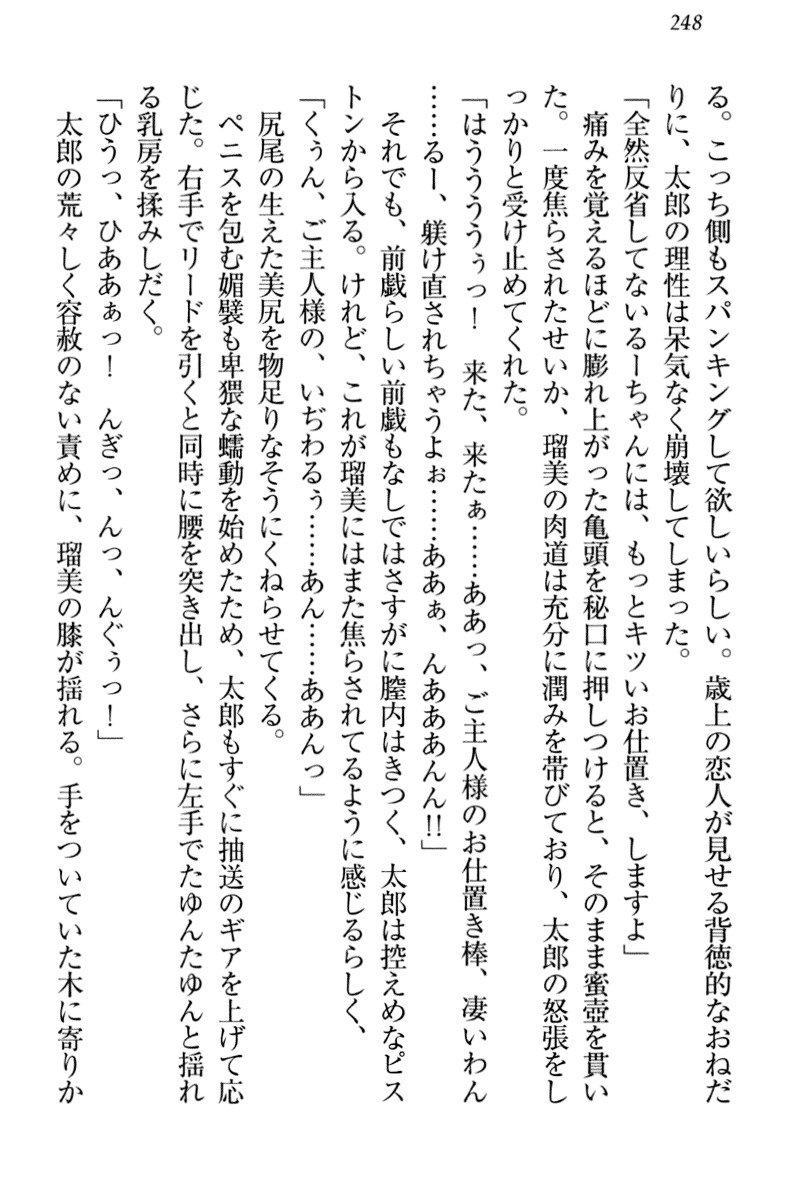 248
る。こっち側もスパンキングして欲しいらしい。歳上の恋人が見せる背徳的なおねだ
りに、太郎の理性は呆気なく崩壊してしまった。
「全然反省してないるーちゃんには、もっとキツいお仕置き、しますよ」
　痛みを覚えるほどに膨れ上がった亀頭を秘口に押しつけると、そのまま蜜壺を貫い
た。一度焦らされたせいか、瑠美の肉道は充分に潤みを帯びており、太郎の怒張をし
っかりと受け止めてくれた。
「はうううぅっ！　来た、来たぁ……ああっ、ご主人様のお仕置き棒、凄いわん
……るー、躾け直されちゃうよぉ……ああぁ、んあああんん!!」
　それでも、前戯らしい前戯もなしではさすがに膣内はきつく、太郎は控えめなピス
トンから入る。けれど、これが瑠美にはまた焦らされてるように感じるらしく、
「くぅん、ご主人様の、いぢわるぅ……あん……ああんっ」
　尻尾の生えた美尻を物足りなそうにくねらせてくる。
　ペニスを包む媚襞も卑猥な蠕動を始めたため、太郎もすぐに抽送のギアを上げて応
じた。右手でリードを引くと同時に腰を突き出し、さらに左手でたゆんたゆんと揺れ
る乳房を揉みしだく。
「ひうっ、ひああぁっ！　んぎっ、んっ、んぐぅっ！」
　太郎の荒々しく容赦のない責めに、瑠美の膝が揺れる。手をついていた木に寄りか